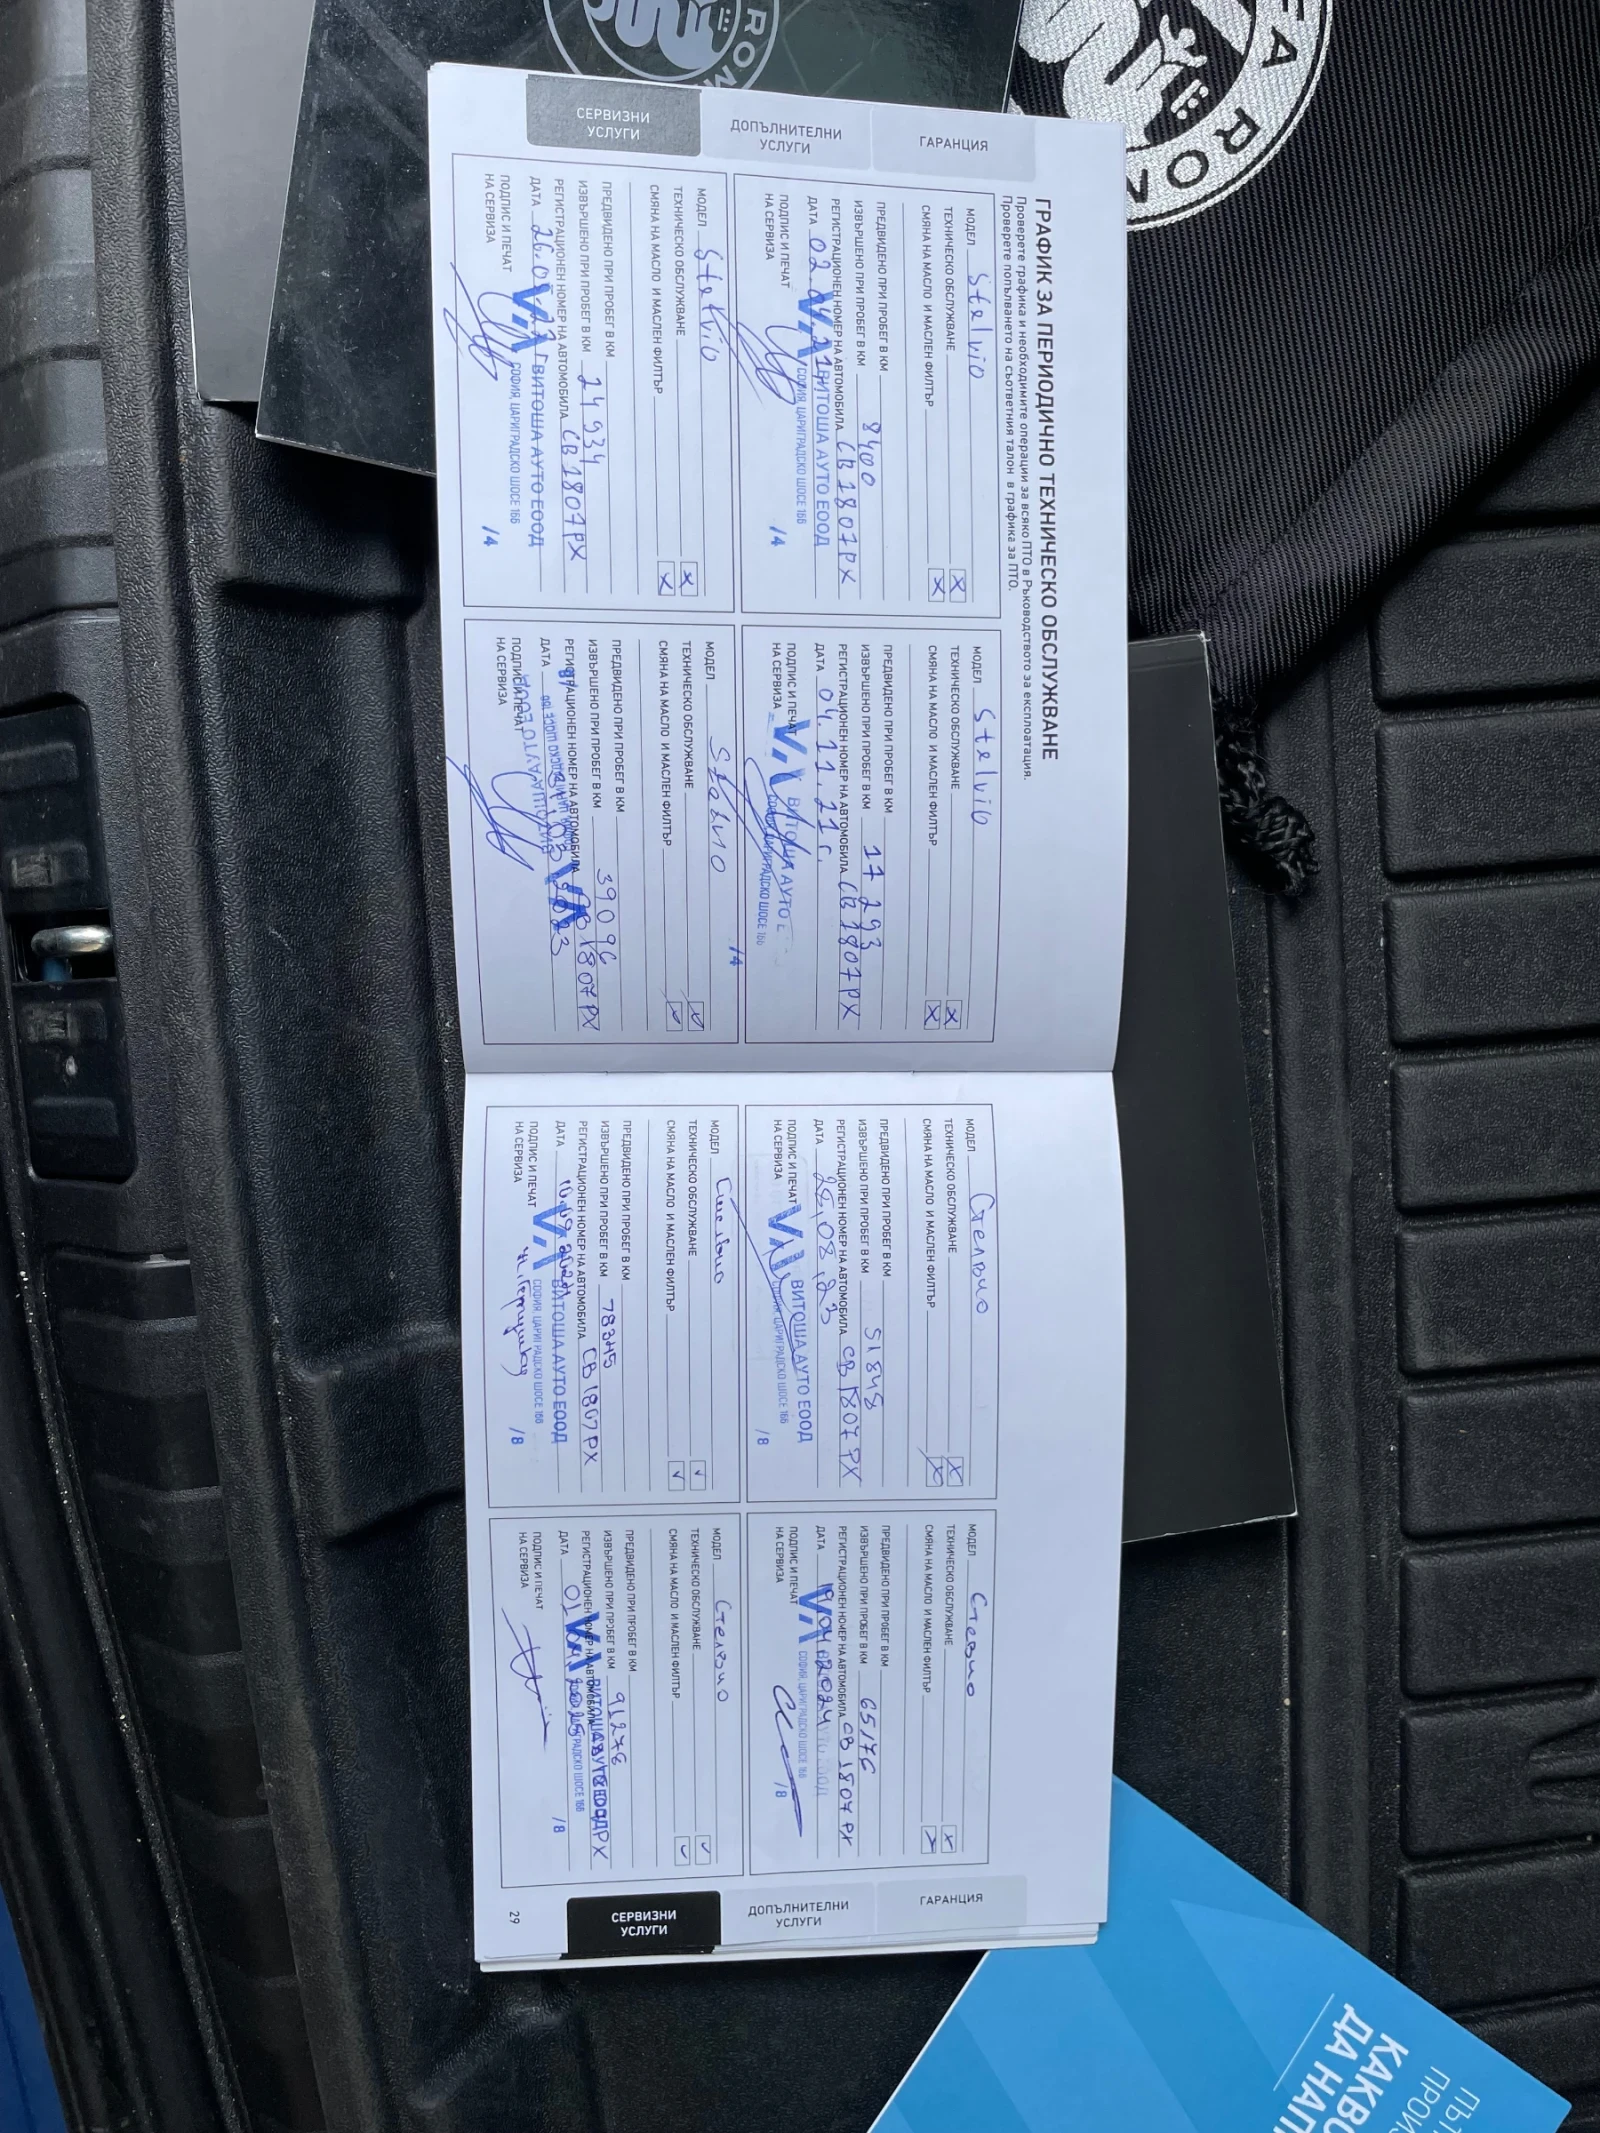 СЕРВИЗНИ
УСЛУГИ
ДОПЪЛНИТЕЛНИ
УСЛУГИ
ГАРАНЦИЯ
ГРАФИК ЗА ПЕРИОДИЧНО ТЕХНИЧЕСКО ОБСЛУЖВАНЕ
Проверете графика и необходимите операции за всяко ПТО в Ръководството за експлоатация.
Проверете попълването на съответния талон в графика за ПТО.
МОДЕЛ Stelvio
ТЕХНИЧЕСКО ОБСЛУЖВАНЕ X
СМЯНА НА МАСЛО И МАСЛЕН ФИЛТЪР X
ПРЕДВИДЕНО ПРИ ПРОБЕГ В КМ
ИЗВЪРШЕНО ПРИ ПРОБЕГ В КМ 8400
РЕГИСТРАЦИОНЕН НОМЕР НА АВТОМОБИЛА CB1807PX
ДАТА 02.04.21
ВИТОША АУТО ЕООД
ПОДПИС И ПЕЧАТ
НА СЕРВИЗА
СОФИЯ, ЦАРИГРАДСКО ШОСЕ 166
/4
МОДЕЛ Stelvio
ТЕХНИЧЕСКО ОБСЛУЖВАНЕ X
СМЯНА НА МАСЛО И МАСЛЕН ФИЛТЪР X
ПРЕДВИДЕНО ПРИ ПРОБЕГ В КМ
ИЗВЪРШЕНО ПРИ ПРОБЕГ В КМ 17293
РЕГИСТРАЦИОНЕН НОМЕР НА АВТОМОБИЛА CB1807PX
ДАТА 04.11.21г.
ПОДПИС И ПЕЧАТ
НА СЕРВИЗА
ВИТОША АУТО
СОФИЯ, ЦАРИГРАДСКО ШОСЕ 166
/4
МОДЕЛ Stelvio
ТЕХНИЧЕСКО ОБСЛУЖВАНЕ X
СМЯНА НА МАСЛО И МАСЛЕН ФИЛТЪР X
ПРЕДВИДЕНО ПРИ ПРОБЕГ В КМ
ИЗВЪРШЕНО ПРИ ПРОБЕГ В КМ 24934
РЕГИСТРАЦИОНЕН НОМЕР НА АВТОМОБИЛА CB1807PX
ДАТА
ВИТОША АУТО ЕООД
ПОДПИС И ПЕЧАТ
НА СЕРВИЗА
СОФИЯ, ЦАРИГРАДСКО ШОСЕ 166
/4
МОДЕЛ
ТЕХНИЧЕСКО ОБСЛУЖВАНЕ
СМЯНА НА МАСЛО И МАСЛЕН ФИЛТЪР
ПРЕДВИДЕНО ПРИ ПРОБЕГ В КМ
ИЗВЪРШЕНО ПРИ ПРОБЕГ В КМ 39096
РЕГИСТРАЦИОНЕН НОМЕР НА АВТОМОБИЛА CB1807PX
ДАТА
ПОДПИС И ПЕЧАТ
НА СЕРВИЗА
ВИТОША АУТО ЕООД
МОДЕЛ Стелвио
ТЕХНИЧЕСКО ОБСЛУЖВАНЕ X
СМЯНА НА МАСЛО И МАСЛЕН ФИЛТЪР X
ПРЕДВИДЕНО ПРИ ПРОБЕГ В КМ
ИЗВЪРШЕНО ПРИ ПРОБЕГ В КМ 51848
РЕГИСТРАЦИОНЕН НОМЕР НА АВТОМОБИЛА CB1807PX
ДАТА
ПОДПИС И ПЕЧАТ
НА СЕРВИЗА
ВИТОША АУТО ЕООД
СОФИЯ, ЦАРИГРАДСКО ШОСЕ 166
/8
МОДЕЛ Стевио
ТЕХНИЧЕСКО ОБСЛУЖВАНЕ
СМЯНА НА МАСЛО И МАСЛЕН ФИЛТЪР
ПРЕДВИДЕНО ПРИ ПРОБЕГ В КМ
ИЗВЪРШЕНО ПРИ ПРОБЕГ В КМ 65176
РЕГИСТРАЦИОНЕН НОМЕР НА АВТОМОБИЛА CB1807PX
ДАТА 19.04.2024
ПОДПИС И ПЕЧАТ
НА СЕРВИЗА
СОФИЯ, ЦАРИГРАДСКО ШОСЕ 166
/8
МОДЕЛ Стелвио
ТЕХНИЧЕСКО ОБСЛУЖВАНЕ ✓
СМЯНА НА МАСЛО И МАСЛЕН ФИЛТЪР ✓
ПРЕДВИДЕНО ПРИ ПРОБЕГ В КМ
ИЗВЪРШЕНО ПРИ ПРОБЕГ В КМ 78345
РЕГИСТРАЦИОНЕН НОМЕР НА АВТОМОБИЛА CB1807PX
ДАТА
ВИТОША АУТО ЕООД
ПОДПИС И ПЕЧАТ
НА СЕРВИЗА
СОФИЯ, ЦАРИГРАДСКО ШОСЕ 166
/8
МОДЕЛ Стелвио
ТЕХНИЧЕСКО ОБСЛУЖВАНЕ ✓
СМЯНА НА МАСЛО И МАСЛЕН ФИЛТЪР ✓
ПРЕДВИДЕНО ПРИ ПРОБЕГ В КМ
ИЗВЪРШЕНО ПРИ ПРОБЕГ В КМ 91276
РЕГИСТРАЦИОНЕН НОМЕР НА АВТОМОБИЛА
ДАТА
ПОДПИС И ПЕЧАТ
НА СЕРВИЗА
/8
29
СЕРВИЗНИ
УСЛУГИ
ДОПЪЛНИТЕЛНИ
УСЛУГИ
ГАРАНЦИЯ